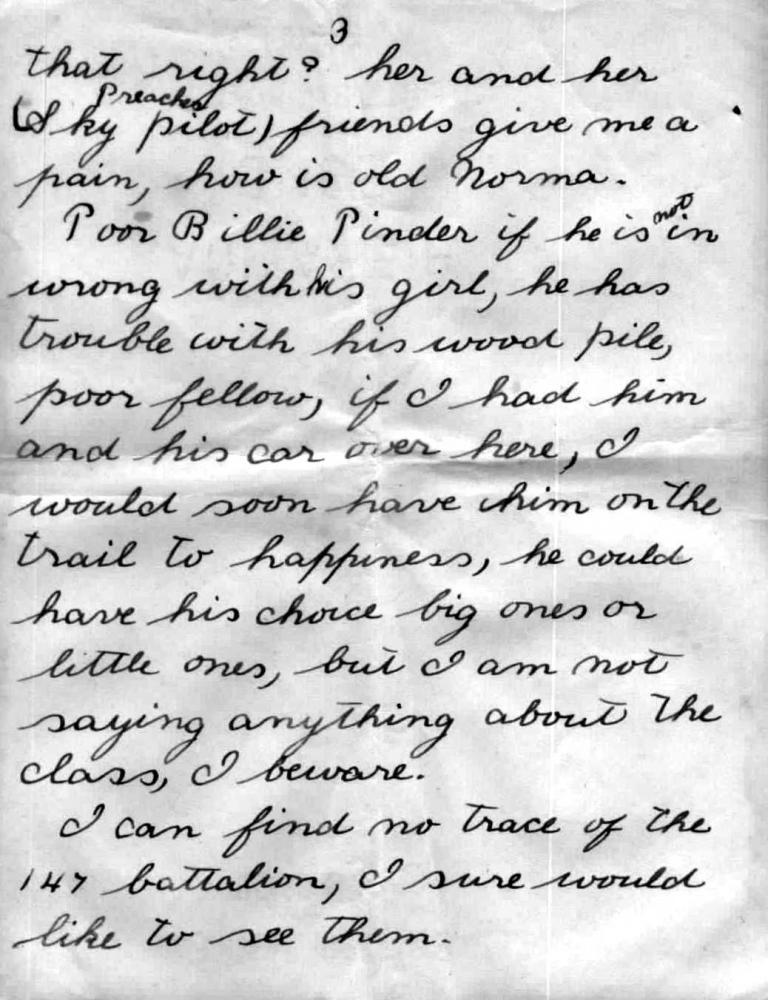 3
that right? her and her
Preacher
(Sky pilot) friends give me a
pain, how is old Norma.
Poor Billie Pinder if he is not in
wrong with his girl, he has
trouble with his wood pile,
poor fellow, if I had him
and his car over here, I
would soon have him on the
trail to happiness, he could
have his choice big ones or
little ones, but I am not
saying anything about the
class, I beware.
I can find no trace of the
147 battalion, I sure would
like to see them.